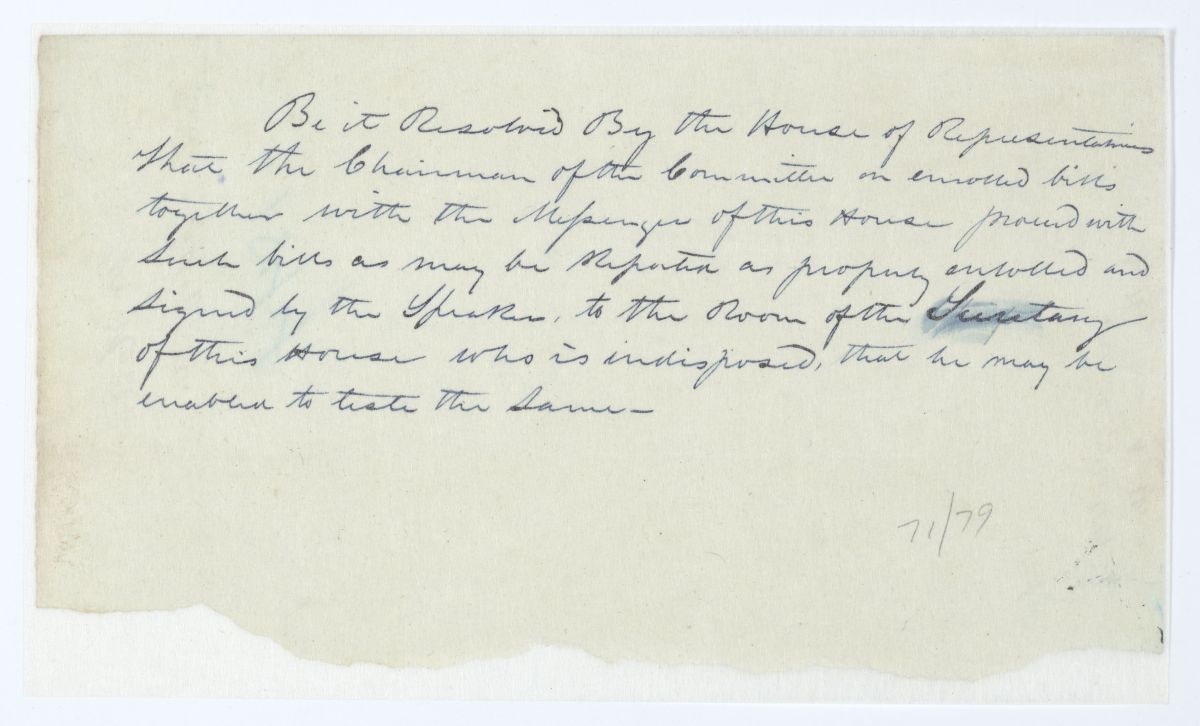 Be it Resolved By the House of Representatives
that the Chairman of the Committee on enrolled bills
together with the Messenger of this House proceed with
Such bills as may be Reported as properly enrolled and
Signed by the Speaker, to the Room of the Secretary
of this House who is indisposed, that he may be
enabled to teste the Same—
71/79